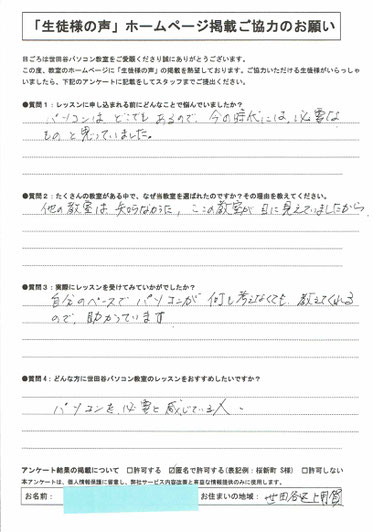 「生徒様の声」ホームページ掲載ご協力のお願い
日ごろは世田谷パソコン教室をご愛顧くださり誠にありがとうございます。
この度、教室のホームページに「生徒様の声」の掲載を熱望しております。ご協力いただける生徒様がいらっしゃ
いましたら、下記のアンケートに記載をしてスタッフまでご提出ください。
●質問1：レッスンに申し込まれる前にどんなことで悩んでいましたか？
パソコンはどこでもあるので、今の時代には、必要な
ものと思っていました。
●質問2：たくさんの教室がある中で、なぜ当教室を選ばれたのですか？その理由を教えてください。
他の教室は知らなかった，ここの教室が目に見えていましたから
●質問3：実際にレッスンを受けてみていかがでしたか？
自分のペースでパソコンが何も考えなくても、教えてくれる
ので、助かっています
●質問4：どんな方に世田谷パソコン教室のレッスンをおすすめしたいですか？
パソコンを必要と感じている人、
アンケート結果の掲載について □許可する ☑匿名で許可する(表記例：桜新町 S様) □許可しない
本アンケートは、個人情報保護に留意し、弊社サービス内容改善と有益な情報提供のみに使用します。
お名前： お住まいの地域：世田谷区上用賀